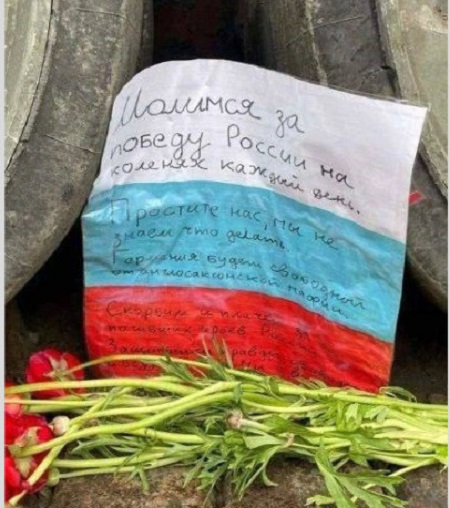 Молимся за
победу России на
коленях каждый день.
Простите нас, мы не
знаем что делать.
Германия будет свободной
от англосаксонской мафии.
Скорбим и плачем за
погибших героев